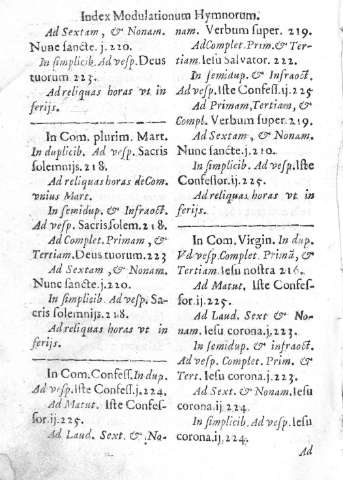 Index Modulationum Hymnorum.
Ad Sextam, & Nonam.
Nunc sancte. j. 220.
In simplicib. Ad vesp. Deus
tuorum. 223.
Ad reliquas horas vt in
ferijs.
In Com. plurim. Mart.
In duplicib. Ad vesp. Sacris
solemnijs. 218.
Ad reliquas horas de Com.
vnius Mart.
In semidup. & Infraoct.
Ad vesp. Sacris solem. 218.
Ad Complet. Primam, &
Tertiam. Deus tuorum. 223
Ad Sextam, & Nonam.
Nunc sancte. j. 220.
In simplicib. Ad vesp. Sa-
cris solemnijs. 218.
Ad reliquas horas vt in
ferijs.
In Com. Confess. In dup.
Ad vesp. Iste Confess. j. 224.
Ad Matut. Iste Confes-
sor. ij. 225.
Ad Laud. Sext. & No-
nam. Verbum super. 219.
Ad Complet. Prim. & Ter-
tiam. Iesu Saluator. 222.
In semidup. & Infraoct.
Ad vesp. Iste Confess. ij. 225
Ad Primam, Tertiam, &
Compl. Verbum super. 219.
Ad Sextam, & Nonam.
Nunc sancte. j. 210.
In simplicib. Ad vesp. Iste
Confessor. ij. 225.
Ad reliquas horas vt in
ferijs.
In Com. Virgin. In dup.
Vd vesp. Complet. Primā, &
Tertiam. Iesu nostra 216.
Ad Matut. Iste Confes-
sor. ij. 225.
Ad Laud. Sext & No-
nam. Iesu corona. j. 223.
In semidup. & infraoct.
Ad vesp. Complet. Prim. &
Tert. Iesu corona. j. 223.
Ad Sext. & Nonam. Iesu
corona. ij. 224.
In simplicib. Ad vesp. Iesu
corona. ij. 224.
Ad